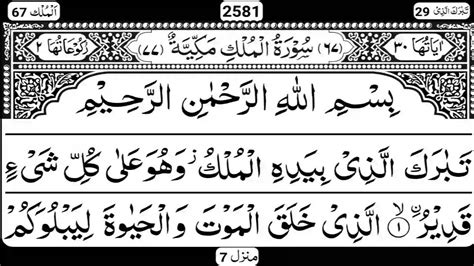 67 اَلْمُلْك 2581 تَبٰرَكَ الَّذِىْ 29
اٰيَاتُهَا ٣٠ (٦٧) سُوْرَةُ الْمُلْكِ مَكِّيَّةٌ (٧٧) رُكُوْعَاتُهَا ٢
بِسْمِ اللّٰهِ الرَّحْمٰنِ الرَّحِيْمِ
تَبٰرَكَ الَّذِىْ بِيَدِهِ الْمُلْكُ ز وَهُوَ عَلٰى كُلِّ شَىْءٍ
قَدِيْرُ ۙ﴿١﴾ اۨلَّذِىْ خَلَقَ الْمَوْتَ وَالْحَيٰوةَ لِيَبْلُوَكُمْ
منزل 7